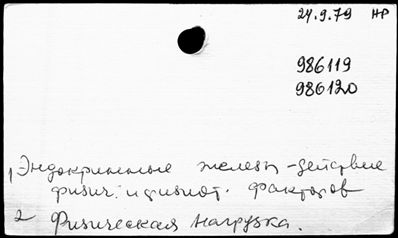 24.9.79 НР
986119
986120
1, Эндокринные железы - действие
физич. и физиот. факторов
2 Физическая нагрузка.